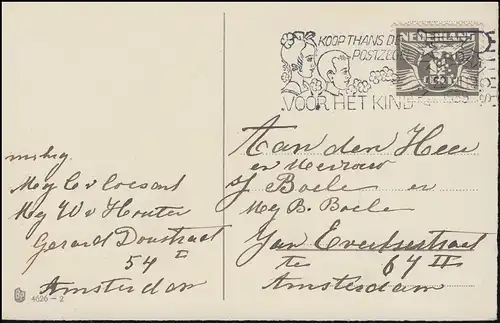 KOOP THANS DE
POSTZEG
VOOR HET KIND
NEDERLAND
Mej
Mej W v Houten
Gerard Doustraat
54 I
Amsterdam
4626 - 2
Aan den Heer
en Mevrouw
J Boele en
Mej B. Boele
Jan Evertsestraat
te 64 II
Amsterdam